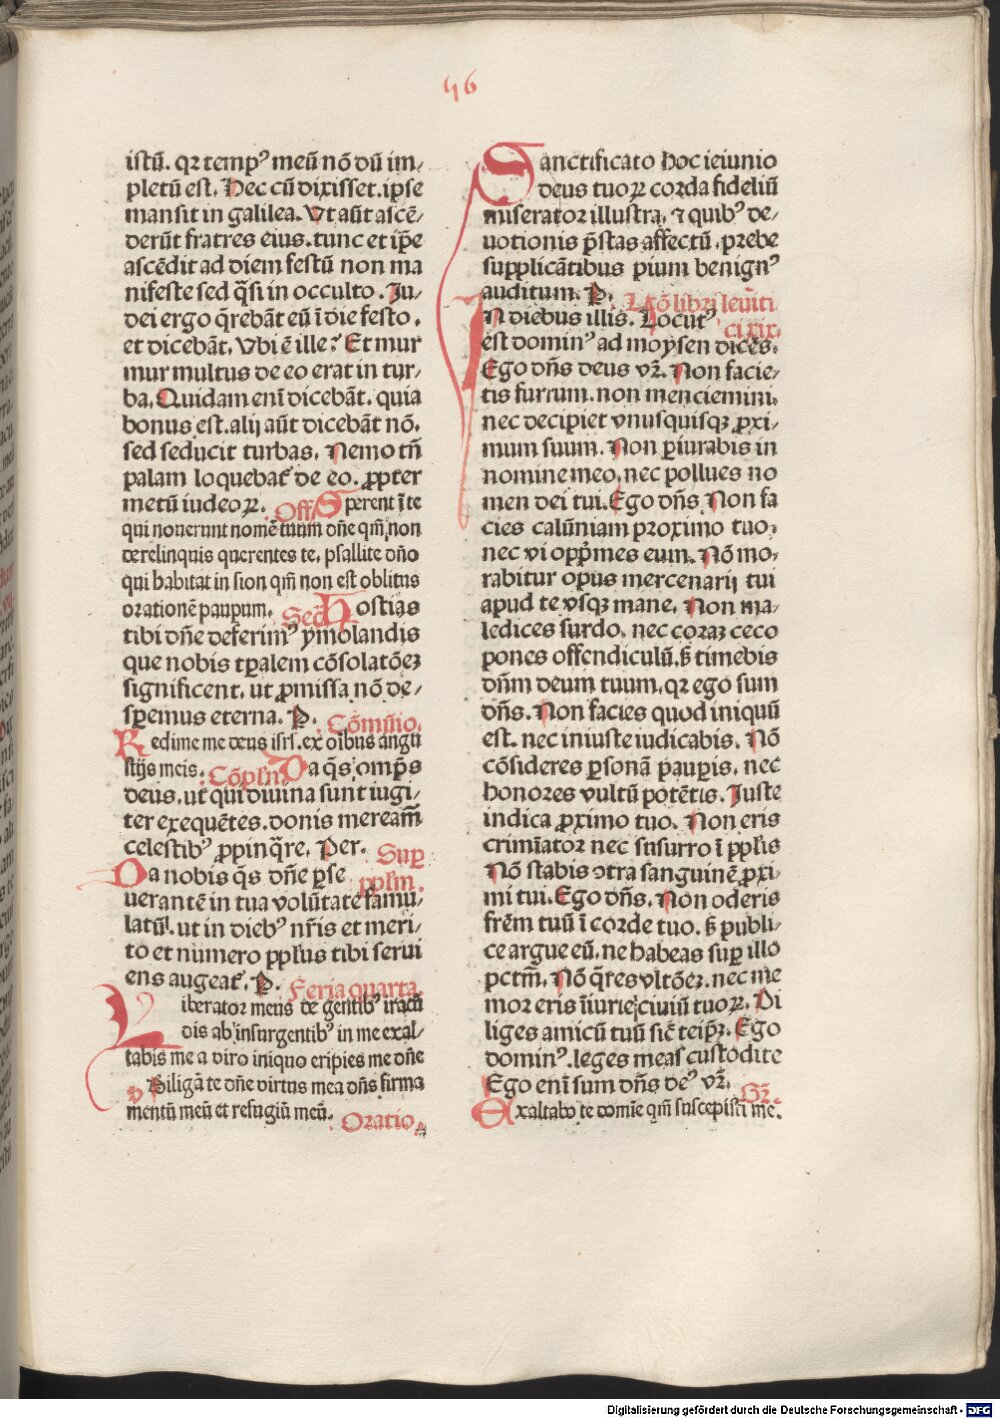 56
istū. qꝛ tempꝰ meū nō dū im⸗
pletū est. Hec cū dixisset. ipse
mansit in galilea. Vt aūt ascē⸗
derūt fratres eius. tunc et ip̄e
ascēdit ad diem festū non ma
nifeste sed q̄si in occulto. Ju⸗
dei ergo q̄rebāt eū ī die festo.
et dicebāt. Vbi ē ille? Et mur
mur multus de eo erat in tur⸗
ba. Quidam enī dicebāt. quia
bonus est. alij aūt dicebāt nō.
sed seducit turbas. Nemo tn̄
palam loquebat᷑ de eo. ꝓpter
metū iudeoꝝ. Off. Sperent ī te
qui nouerunt nomē tuum dn̄e qm̄ non
derelinquis querentes te. psallite dn̄o
qui habitat in sion qm̄ non est oblitus
orationē paupum. Sec̄. Hostias
tibi dn̄e deferimꝰ ymolandis
que nobis tp̄alem cōsolatōeꝫ
significent. ut ꝓmissa nō de⸗
sꝑemus eterna. P. Cōmūio.
Redime me deus isrl̄. ex oībus angu
stijs meis. Cōpln̄. Da q̄s omp̄s
deus. ut qui diuina sunt iugi⸗
ter exequētes. donis meream̄
celestibꝰ ꝓpinq̄re. Per. Suꝑ
Da nobis q̄s dn̄e ꝑse pplm̄.
uerantē in tua volūtate famu⸗
latū. ut in diebꝰ nr̄is et meri⸗
to et numero pplus tibi serui
ens augeat᷑. P. Feria quarta.
Liberator meus de gentibꝰ iracū
dis ab insurgentibꝰ in me exal⸗
tabis me a viro iniquo eripies me dn̄e
v Diligā te dn̄e virtus mea dn̄s firma
mentū meū et refugiū meū. Oratio.
Sanctificato hoc ieiunio
deus tuoꝝ corda fideliū
miserator illustra. ⁊ quibꝰ de⸗
uotionis p̄stas affectū. p̄rebe
supplicātibus pium benignꝰ
auditum. P. Lc̄o libri leuīti
In diebus illis. Locutꝰ ci xix.
est dominꝰ ad moysen dicēs.
Ego dn̄s deus vr̄. Non facie⸗
tis furrum. non menciemini.
nec decipiet vnusquisqꝫ ꝓxi⸗
mum suum. Non ꝑiurabis in
nomine meo. nec pollues no
men dei tui. Ego dn̄s. Non fa
cies calūniam proximo tuo.
nec vi opp̄mes eum. Nō mo⸗
rabitur opus mercenarij tui
apud te vsqꝫ mane. Non ma⸗
ledices surdo. nec coraꝫ ceco
pones offendiculū. ꝫ timebis
dn̄m deum tuum. qꝛ ego sum
dn̄s. Non facies quod iniquū
est. nec iniuste iudicabis. Nō
cōsideres ꝑsonā pauꝑis. nec
honores vultū potētis. Juste
iudica ꝓximo tuo. Non eris
crimīator nec susurro ī pplis
Nō stabis ꝯtra sanguinē ꝓxi⸗
mi tui. Ego dn̄s. Non oderis
frēm tuū ī corde tuo. ꝫ publi⸗
ce argue eū. ne habeas suꝑ illo
pctm̄. Nō q̄res vltōeꝫ. nec me
mor eris īiurie ciuiū tuoꝝ. Di
liges amicū tuū sic̄ teip̄ꝫ. Ego
dominꝰ. leges meas custodite
Ego enī sum dn̄s deꝰ vr̄. Gr̄.
Exaltabo te domīe qm̄ suscepisti me.
Digitalisierung gefördert durch die Deutsche Forschungsgemeinschaft - DFG